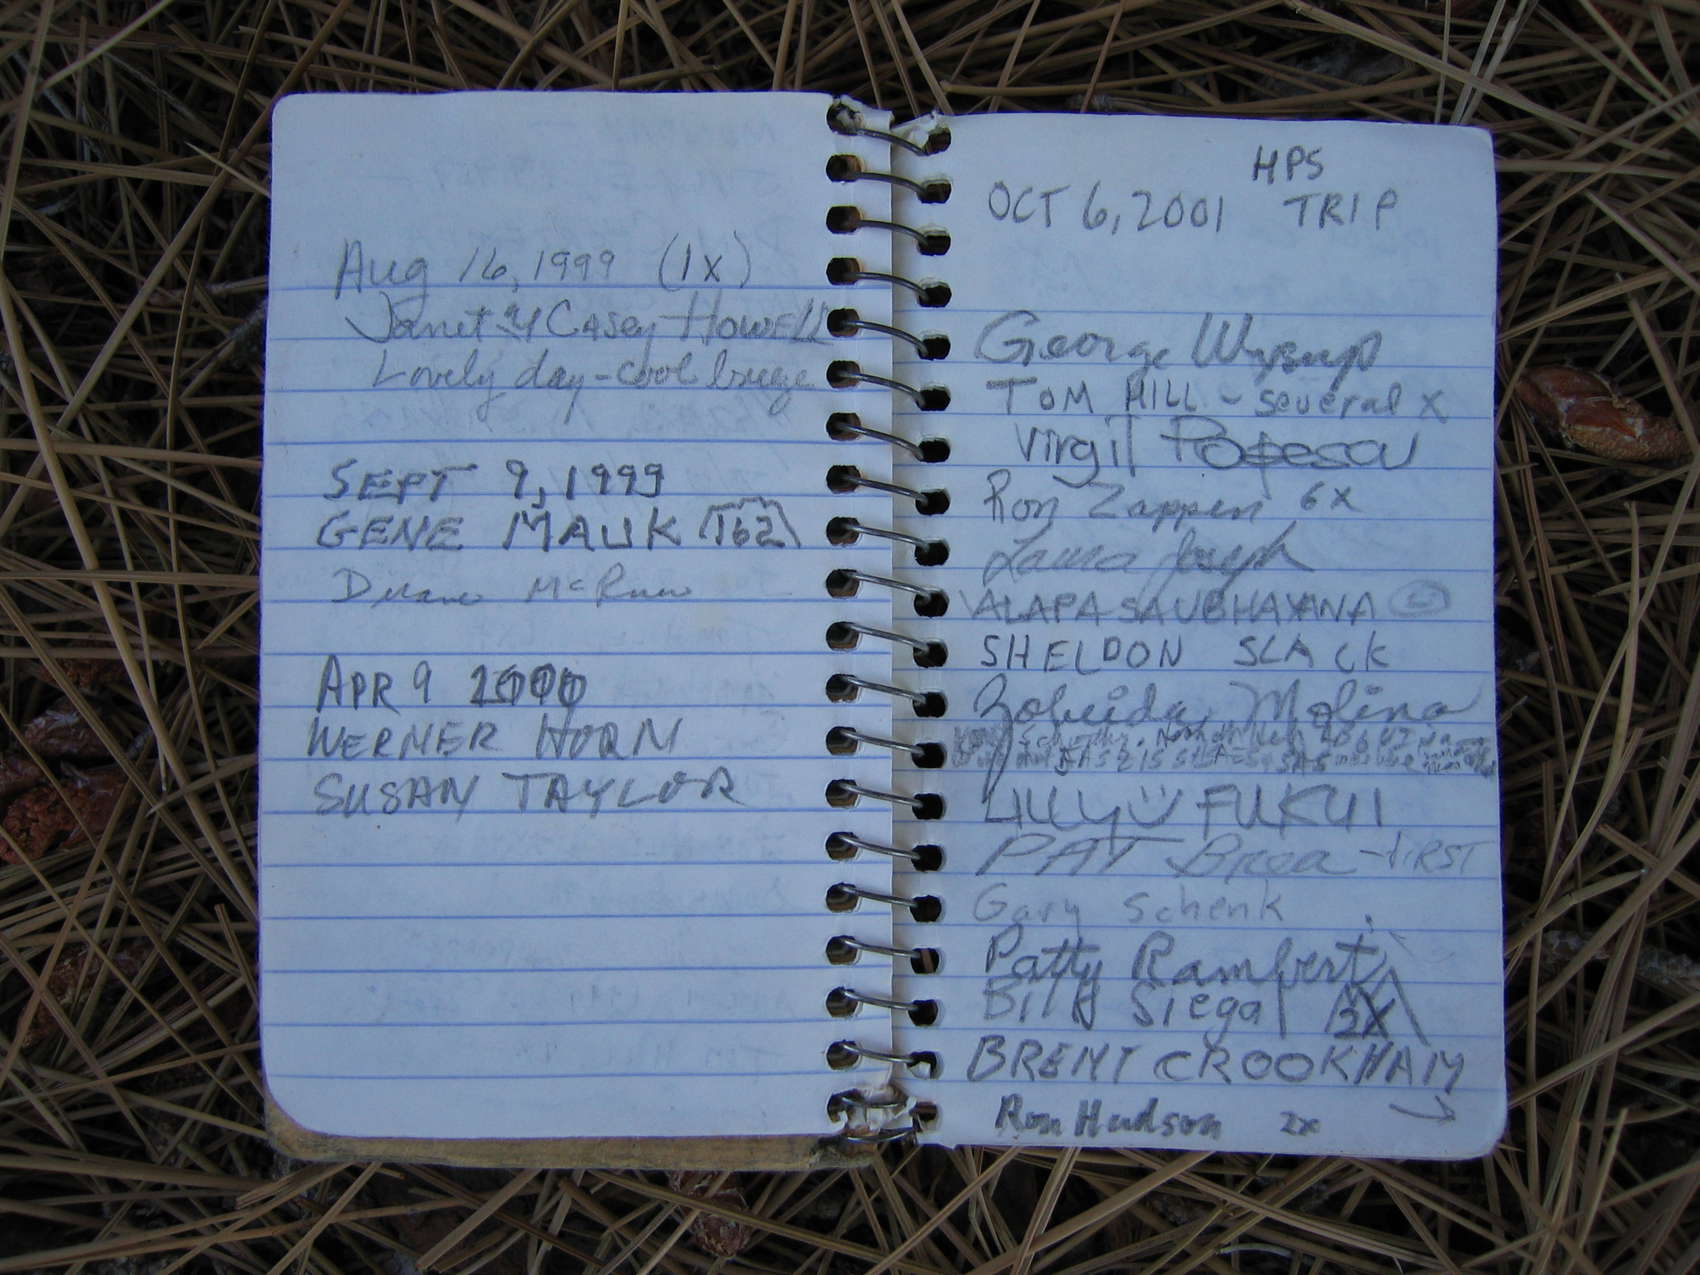 Aug 16, 1999 (1x)
Janet & Casey Howell
Lovely day - cool breeze
SEPT 9, 1999
GENE MAUK 162
Duane McRuer
APR 9 2000
WERNER HORN
SUSAN TAYLOR
HPS
OCT 6, 2001 TRIP
George Wysup
TOM HILL - several x
Virgil Popescu
Ron Zappen 6x
Laura Joseph
ALAPASAUBHAYANA
SHELDON SLACK
Zobeida Molina
LILLY FUKUI
PAT Brea - FIRST
Gary Schenk
Patty Rambert
Bill Siegal 2X
BRENT CROOKHAM
Ron Hudson 2x